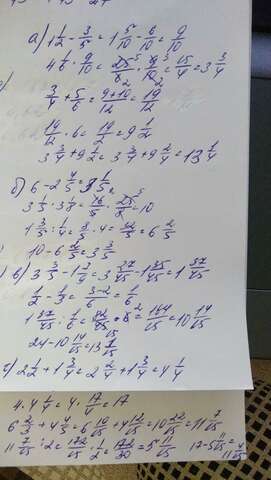 а) 1 1/2 - 3/5 = 1 5/10 - 6/10 = 9/10
4 1/6 · 9/10 = 25/6 · 9/10 = 15/4 = 3 3/4
3/4 + 5/6 = 9+10/12 = 19/12
19/12 · 6 = 19/2 = 9 1/2
3 3/4 + 9 1/2 = 3 3/4 + 9 2/4 = 13 1/4
б) 6 - 2 4/5 = 3 1/5
3 1/5 · 3 1/8 = 16/5 · 25/8 = 10
1 3/5 : 1/4 = 8/5 · 4 = 32/5 = 6 2/5
10 - 6 2/5 = 3 3/5
в) 3 3/5 - 1 7/9 = 3 27/45 - 1 35/45 = 1 37/45
1/2 - 1/3 = 3-2/6 = 1/6
1 37/45 : 1/6 = 82/45 · 6 = 164/15 = 10 14/15
24 - 10 14/15 = 13 1/15
г) 2 1/2 + 1 3/4 = 2 2/4 + 1 3/4 = 4 1/4
4 · 4 1/4 = 4 · 17/4 = 17
6 2/3 + 4 4/5 = 6 10/15 + 4 12/15 = 10 22/15 = 11 7/15
11 7/15 : 2 = 172/15 · 1/2 = 172/30 = 5 11/15 17 - 5 11/15 =